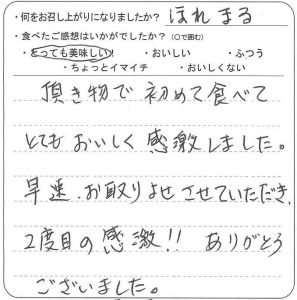 ・何をお召し上がりになりましたか？ ほれまる
・食べたご感想はいかがでしたか？（○で囲む）
・とっても美味しい！ ・おいしい ・ふつう
・ちょっとイマイチ ・おいしくない
頂き物で初めて食べて
とてもおいしく感激しました。
早速、お取りよせさせていただき、
2度目の感激!! ありがとう
ございました。